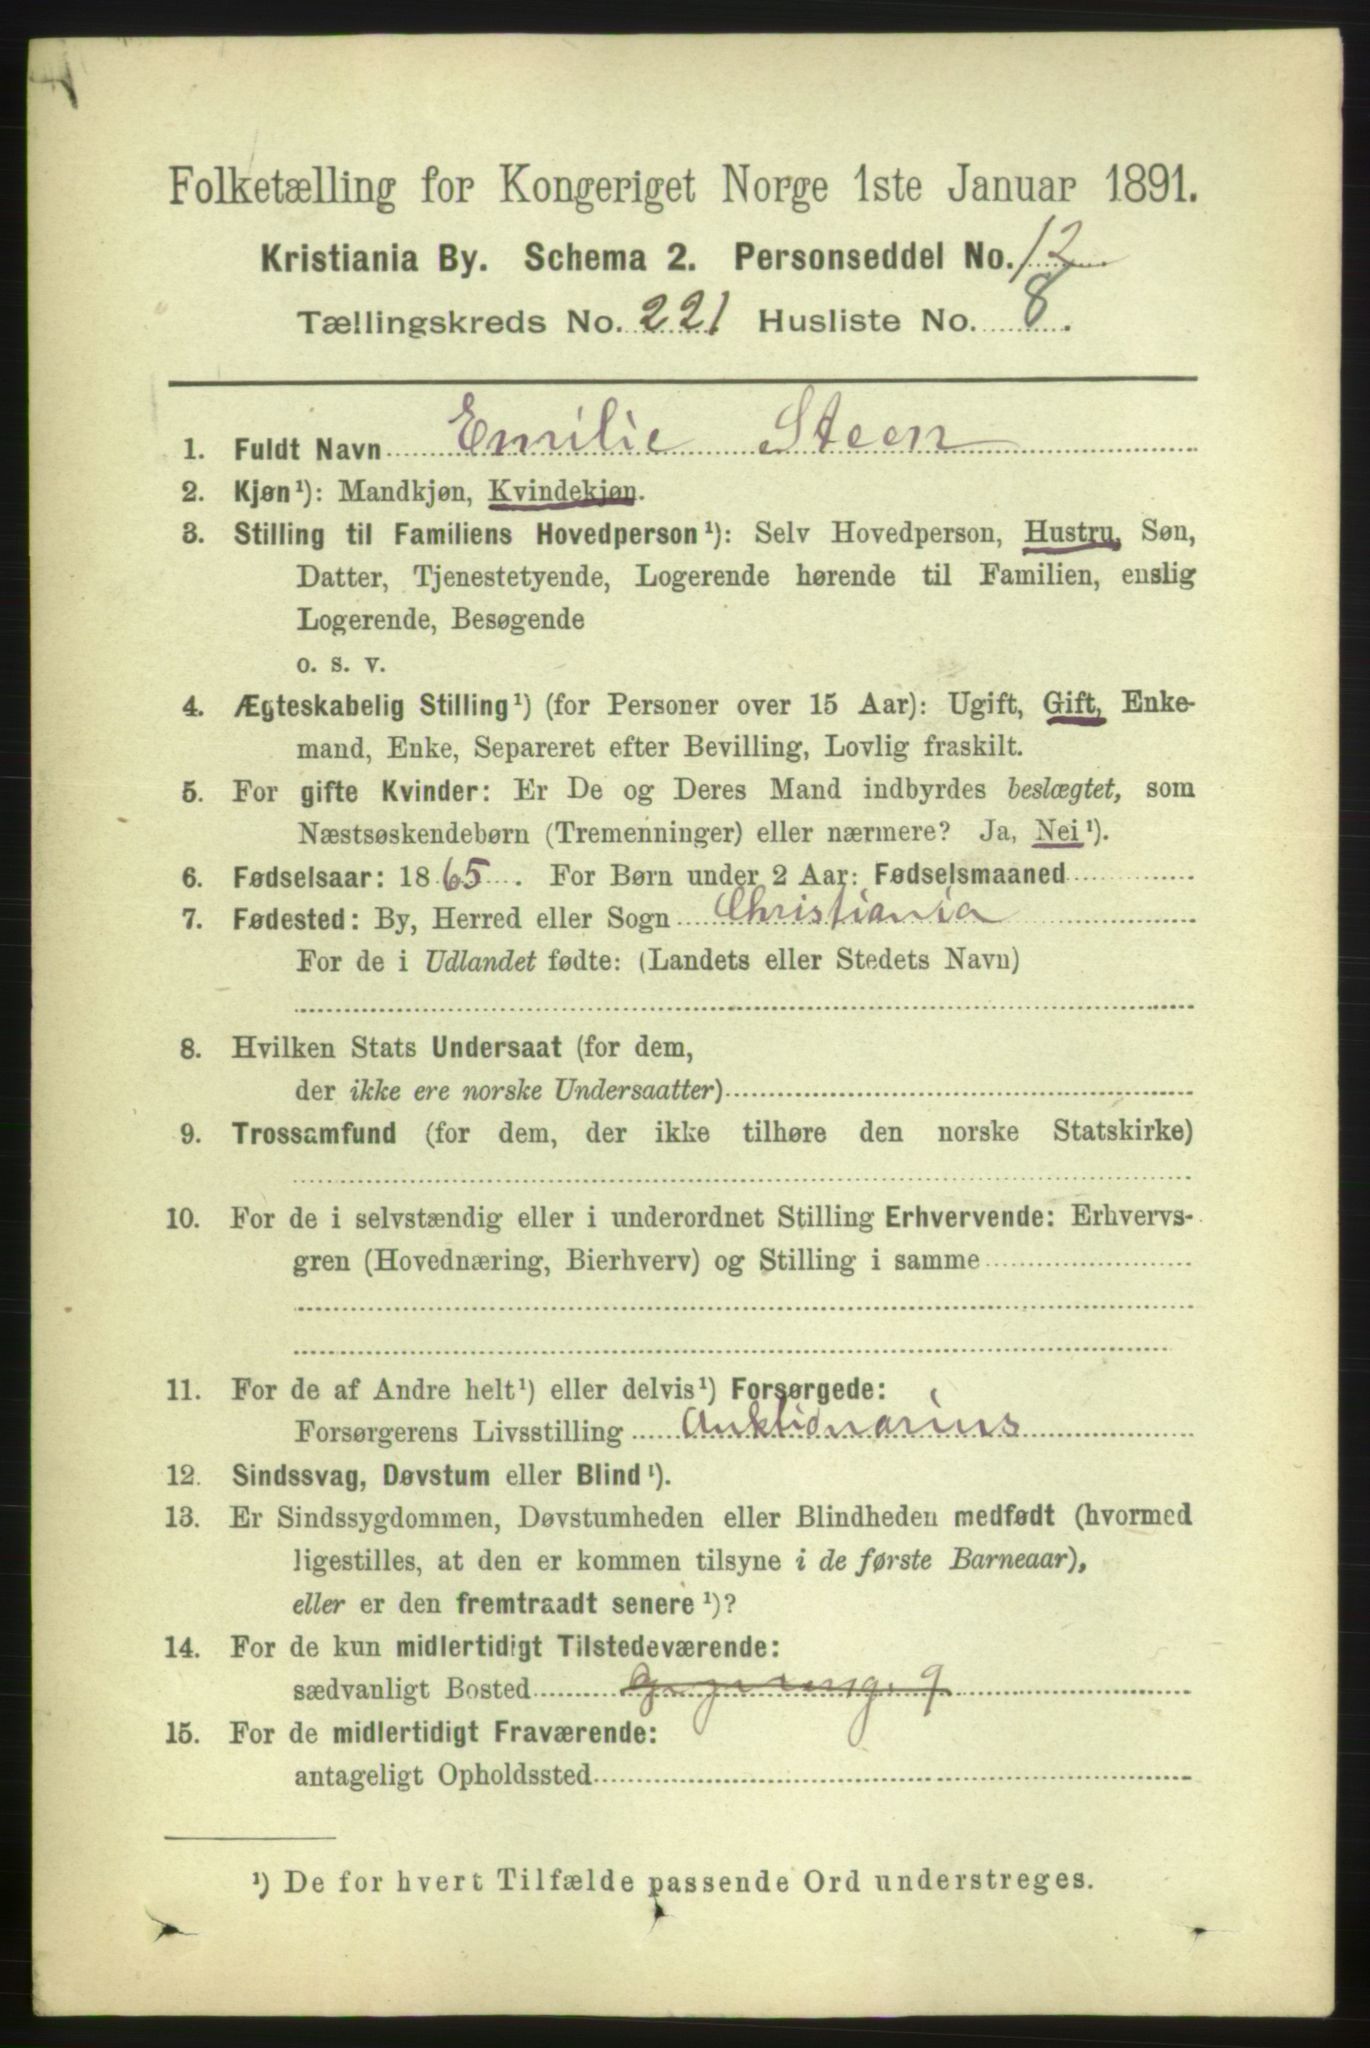 Folketælling for Kongeriget Norge 1ste Januar 1891.
Kristiania By. Schema 2. Personseddel No. 12
Tællingskreds No. 221 Husliste No. 8.
1. Fuldt Navn Emilie Steen
2. Kjøn¹): Mandkjøn, Kvindekjøn.
3. Stilling til Familiens Hovedperson¹): Selv Hovedperson, Hustru, Søn,
Datter, Tjenestetyende, Logerende hørende til Familien, enslig
Logerende, Besøgende
o. s. v.
4. Ægteskabelig Stilling¹) (for Personer over 15 Aar): Ugift, Gift, Enke-
mand, Enke, Separeret efter Bevilling, Lovlig fraskilt.
5. For gifte Kvinder: Er De og Deres Mand indbyrdes beslægtet, som
Næstsøskendebørn (Tremenninger) eller nærmere? Ja, Nei¹).
6. Fødselsaar: 1865. For Børn under 2 Aar: Fødselsmaaned
7. Fødested: By, Herred eller Sogn Christiania
For de i Udlandet fødte: (Landets eller Stedets Navn)
8. Hvilken Stats Undersaat (for dem,
der ikke ere norske Undersaatter)
9. Trossamfund (for dem, der ikke tilhøre den norske Statskirke)
10. For de i selvstændig eller i underordnet Stilling Erhvervende: Erhvervs-
gren (Hovednæring, Bierhverv) og Stilling i samme
11. For de af Andre helt¹) eller delvis¹) Forsørgede:
Forsørgerens Livsstilling Auktionarius
12. Sindssvag, Døvstum eller Blind¹).
13. Er Sindssygdommen, Døvstumheden eller Blindheden medfødt (hvormed
ligestilles, at den er kommen tilsyne i de første Barneaar),
eller er den fremtraadt senere¹)?
14. For de kun midlertidigt Tilstedeværende:
sædvanligt Bosted
15. For de midlertidigt Fraværende:
antageligt Opholdssted
¹) De for hvert Tilfælde passende Ord understreges.